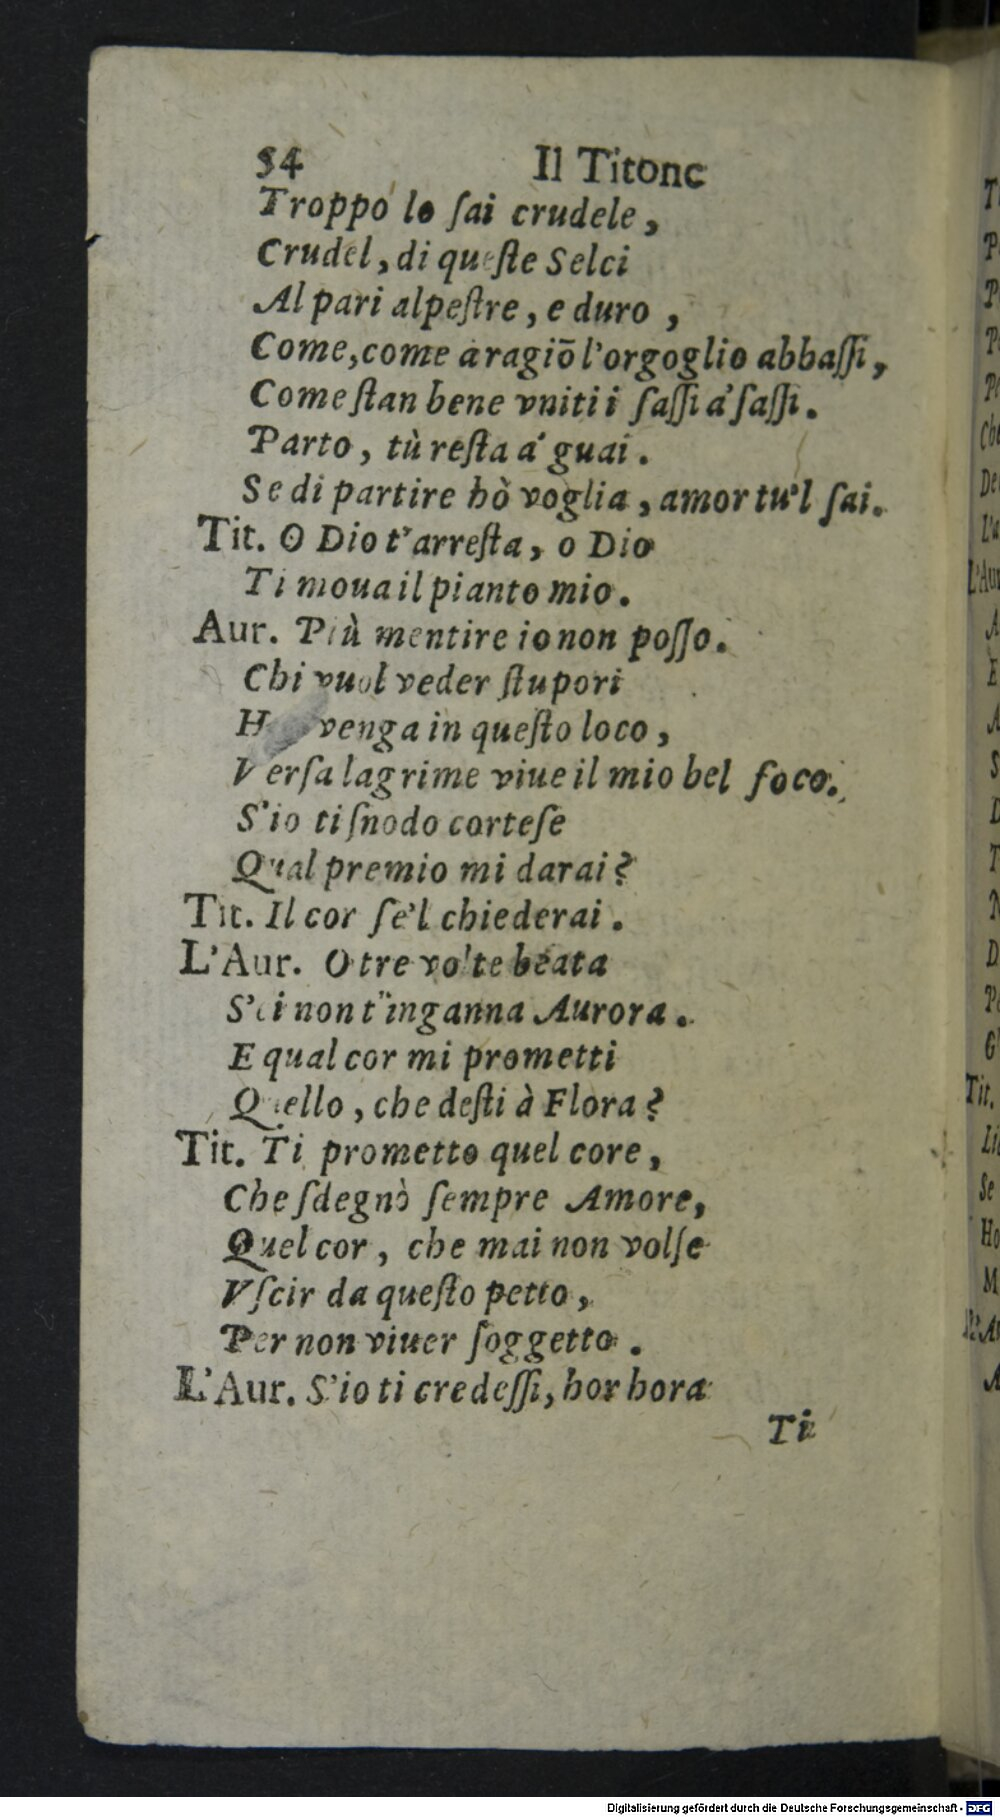 54 Il Titone
Troppo lo ſai crudele,
Crudel, di queſte Selci
Al pari alpeſtre, e duro,
Come, come a ragiō l'orgoglio abbaſſi,
Come ſtan bene vniti i ſaſſi a' ſaſſi.
Parto, tù reſta a' guai.
Se di partire hò voglia, amor tu'l ſai.
Tit. O Dio t'arreſta, o Dio
Ti moua il pianto mio.
Aur. Più mentire io non poſſo.
Chi vuol veder ſtupori
venga in queſto loco,
Verſa lagrime viue il mio bel foco.
S'io ti ſnodo corteſe
Qual premio mi darai?
Tit. Il cor ſe'l chiederai.
L'Aur. O tre volte beata
S'ei non t'inganna Aurora.
E qual cor mi prometti
Quello, che deſti à Flora?
Tit. Ti prometto quel core,
Che ſdegnò ſempre Amore,
Quel cor, che mai non volſe
Vſcir da queſto petto,
Per non viuer ſoggetto.
L'Aur. S'io ti credeſſi, hor hora
Ti
Digitalisierung gefördert durch die Deutsche Forschungsgemeinschaft - DFG